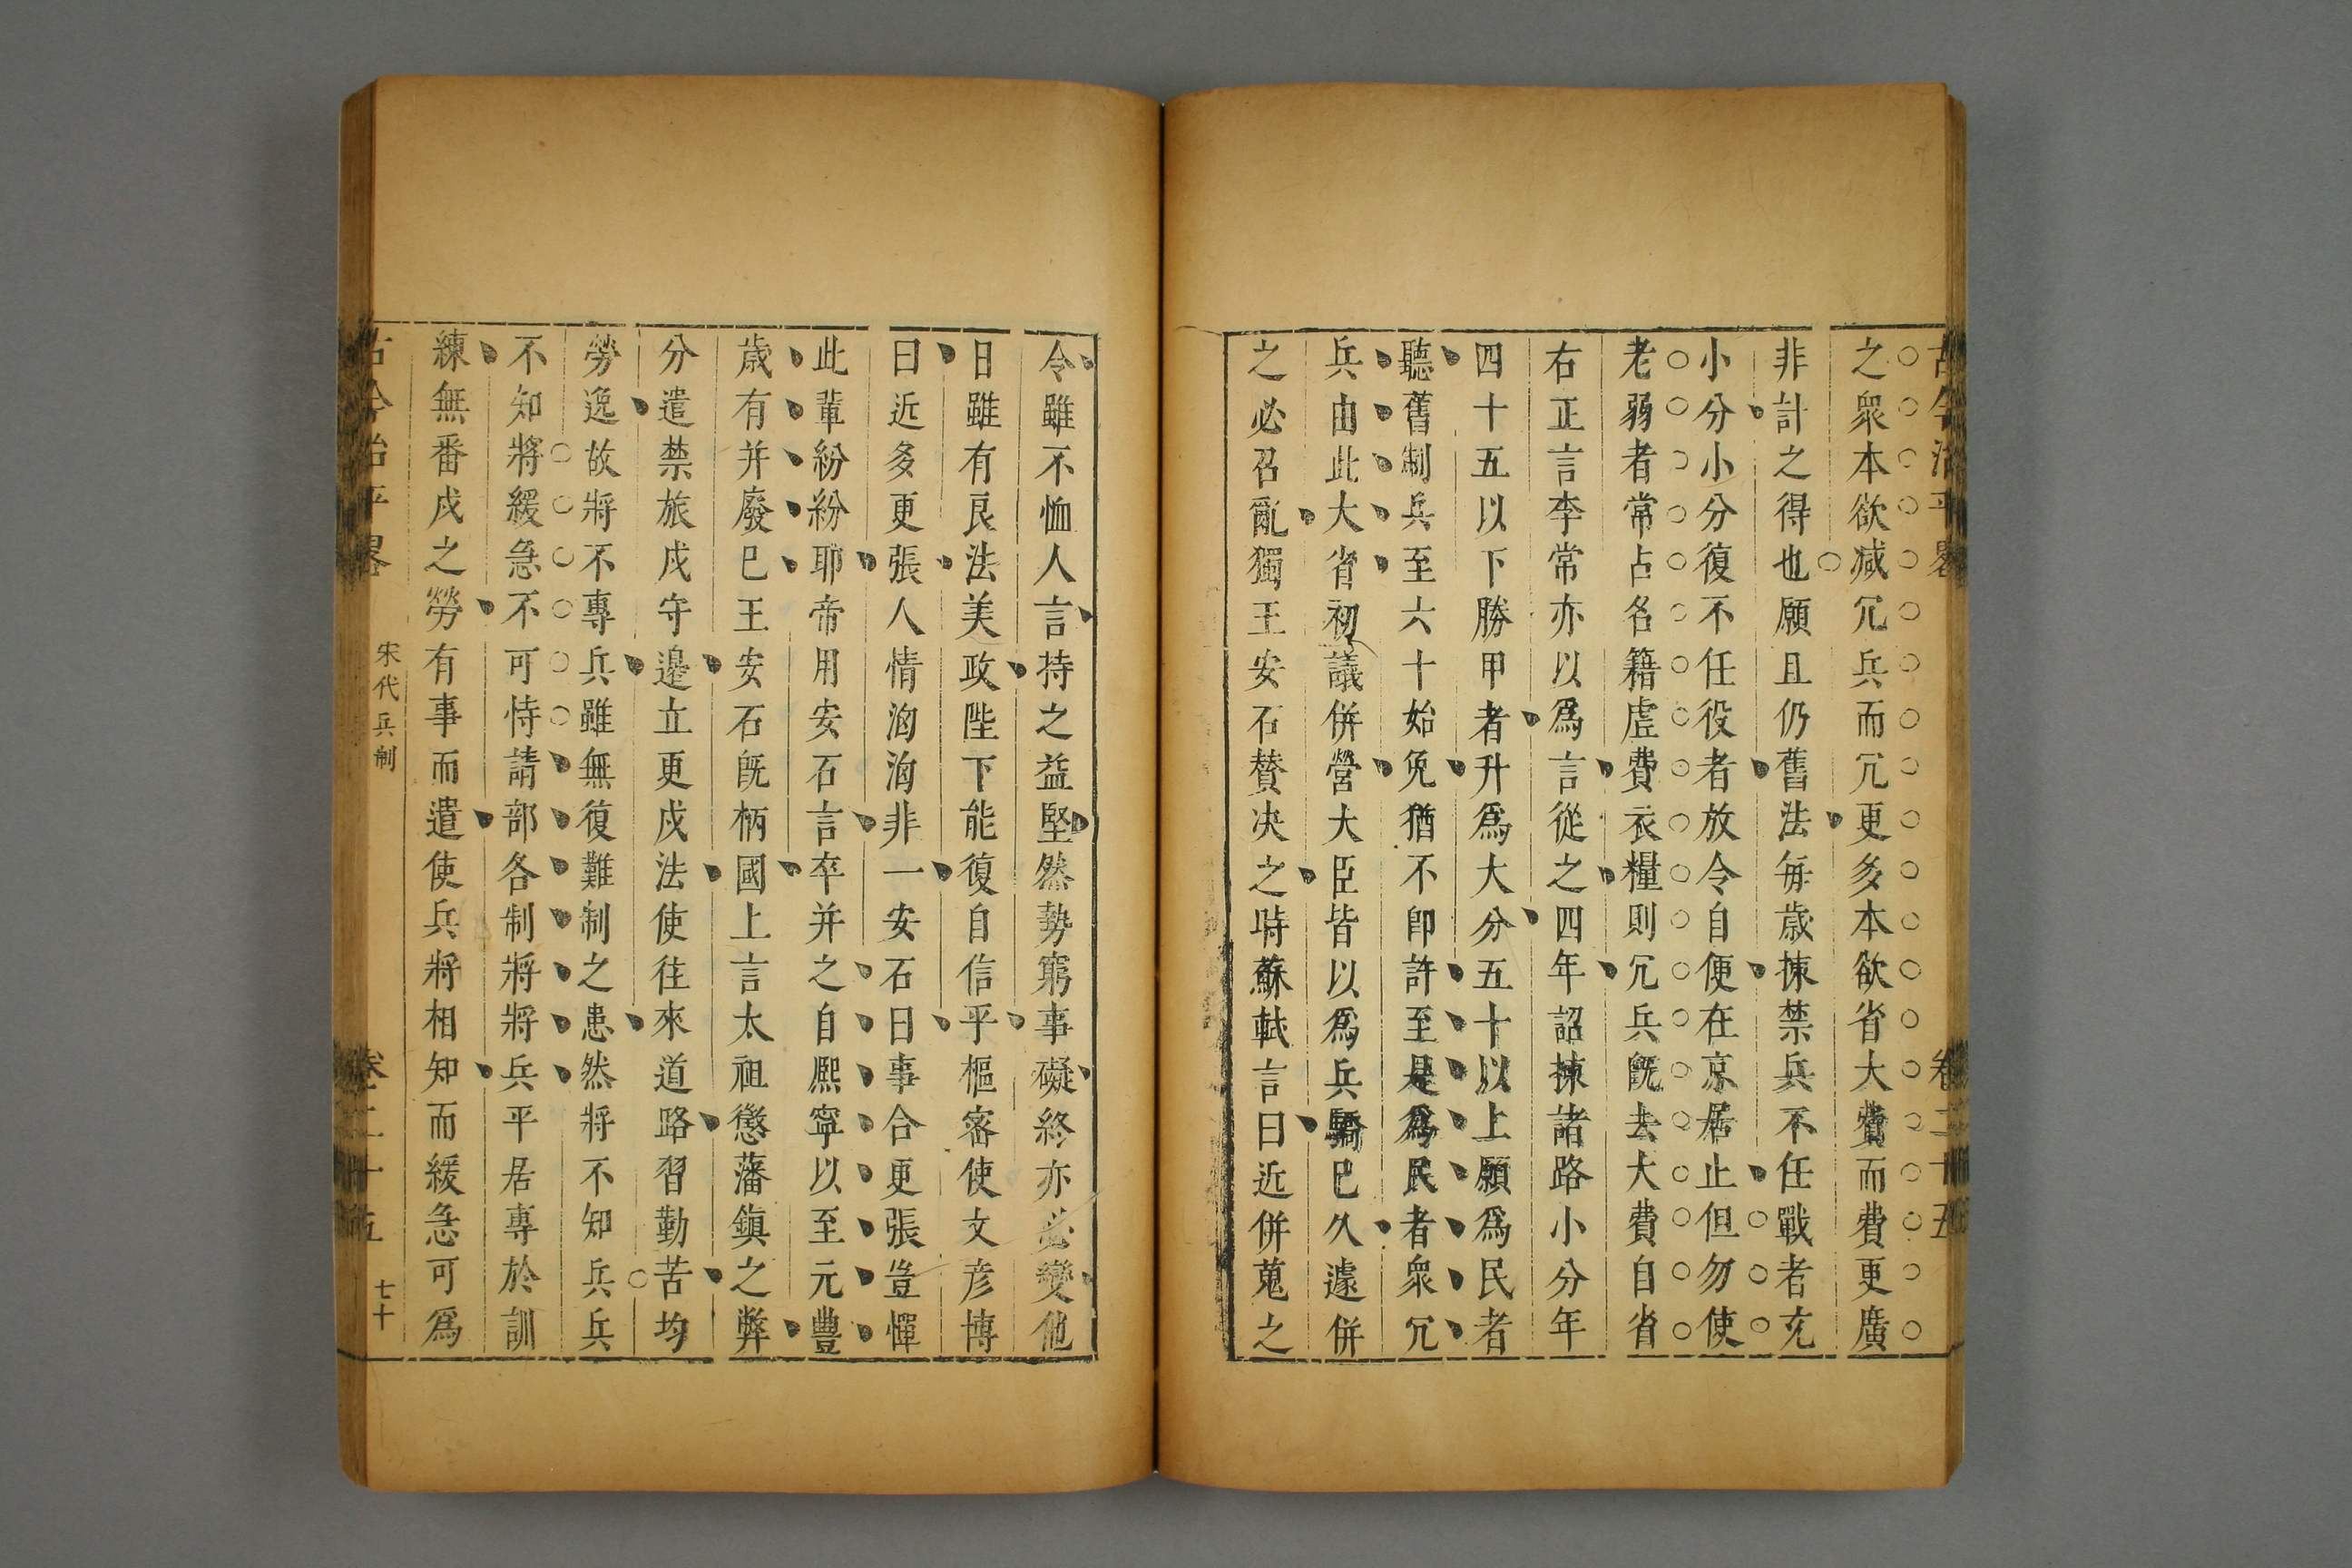 古今治平畧 卷二十五
之衆本欲減冗兵而冗更多本欲省大費而費更廣
非計之得也願且仍舊法每歲揀禁兵不任戰者充
小分小分復不任役者放令自便在京居止但勿使
老弱者常占名籍虛費衣糧則冗兵旣去大費自省
右正言李常亦以爲言從之四年詔揀諸路小分年
四十五以下勝甲者升爲大分五十以上願爲民者
聽舊制兵至六十始免猶不卽許至是爲民者衆冗
兵由此大省初議併營大臣皆以爲兵驕已久遽併
之必召亂獨王安石贊决之時蘇軾言曰近併蒐之
令雖不恤人言持之益堅然勢窮事礙終亦必變他
日雖有良法美政陛下能復自信乎樞密使文彦博
曰近多更張人情洶洶非一安石曰事合更張豈憚
此輩紛紛耶帝用安石言卒并之自熙寧以至元豐
歲有并廢已王安石旣柄國上言太祖懲藩鎭之弊
分遣禁旅戍守邊立更戍法使往來道路習勤苦均
勞逸故將不專兵雖無復難制之患然將不知兵兵
不知將緩急不可恃請部各制將將兵平居專於訓
練無番戍之勞有事而遣使兵將相知而緩急可爲
古今治平畧 宋代兵制 卷二十五 七十